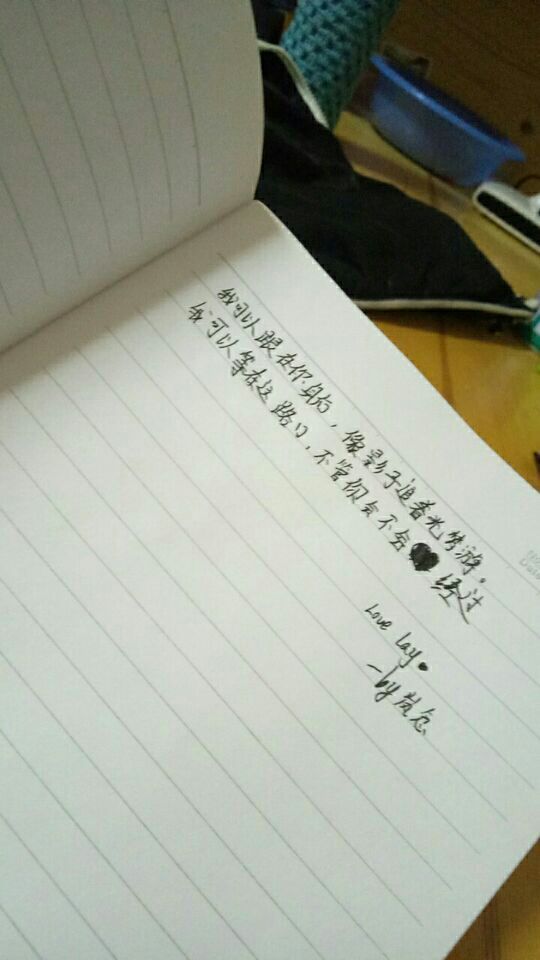 我可以跟在你身后，像影子追着光梦游。
我可以等在这路口，不管你会不会经过
Love Lay.
-by岚念